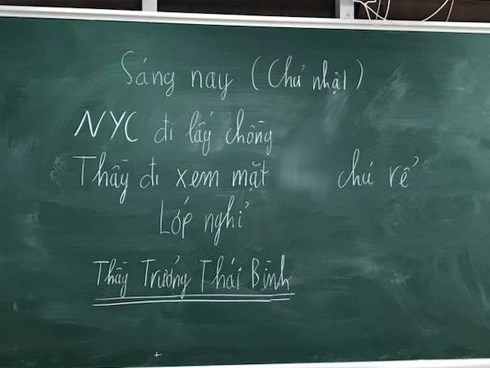 Sáng nay (Chủ nhật)
NYC đi lấy chồng
Thầy đi xem mặt chú rể
Lớp nghỉ
Thầy Trương Thái Bình